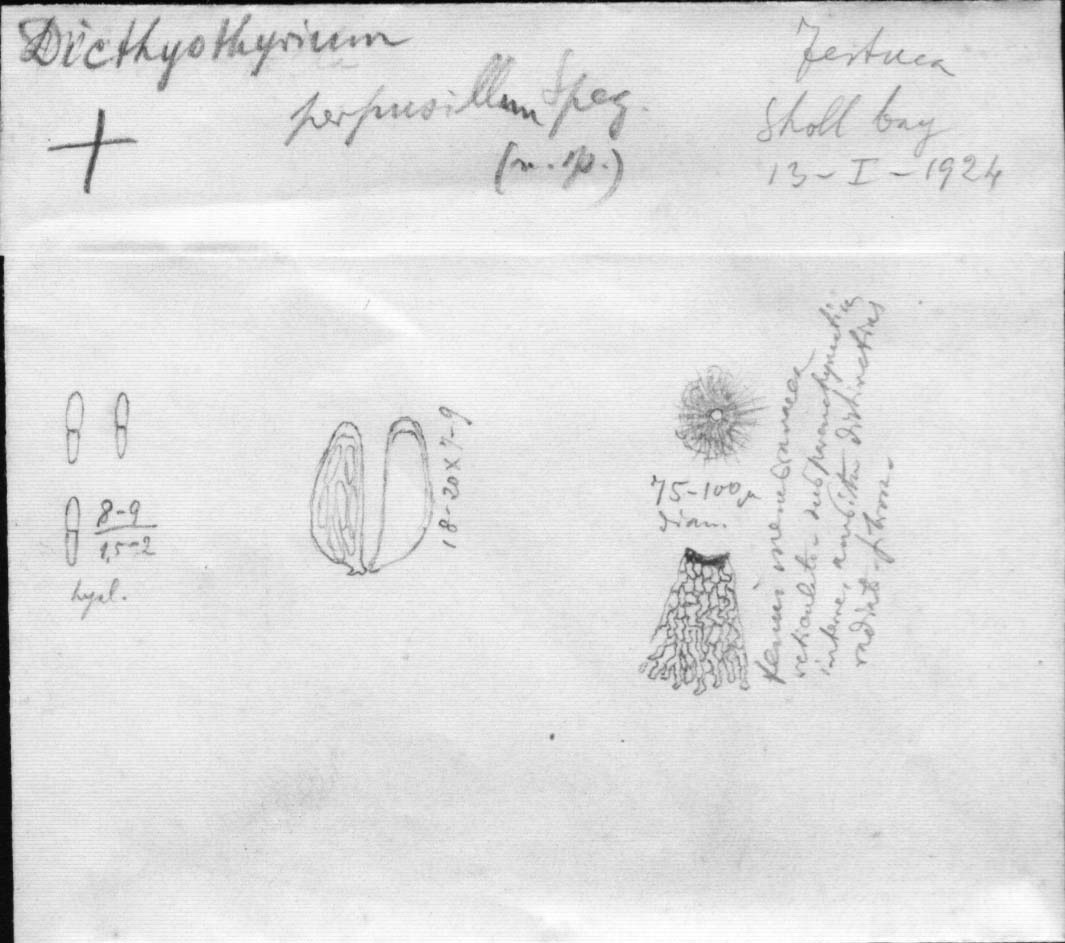 Dicthyothyrium
perpusillum Speg.
(n. sp.)
Festuca
Sholl bay
13-I-1924
+
8-9
1,5-2
hyal.
18-20x7-9
75-100µ
diam.
tenui membranacea
reticulato-subparenchymatica
interne, ambitu distinctius
radiat-fibrosa-